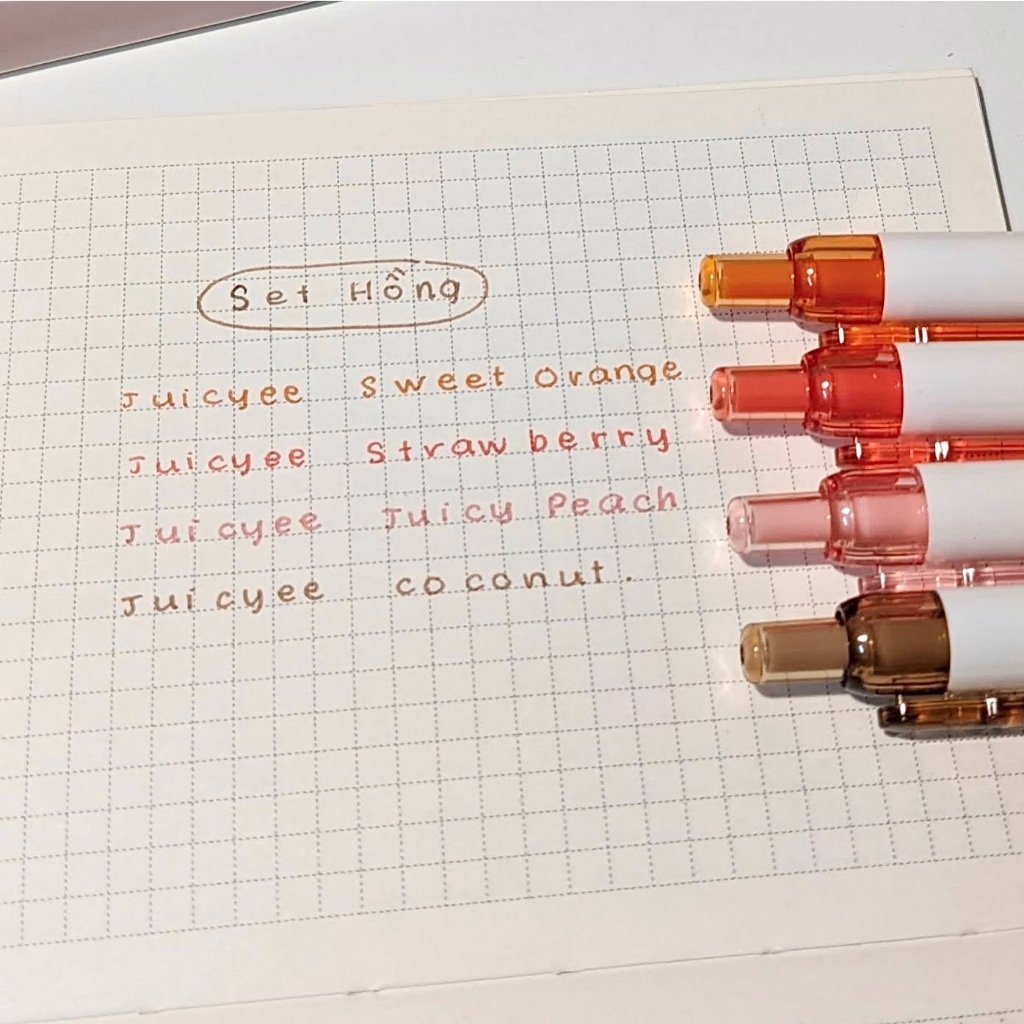 Set Hồng
Juicyee Sweet Orange
Juicyee Strawberry
Juicyee Juicy Peach
Juicyee coconut.